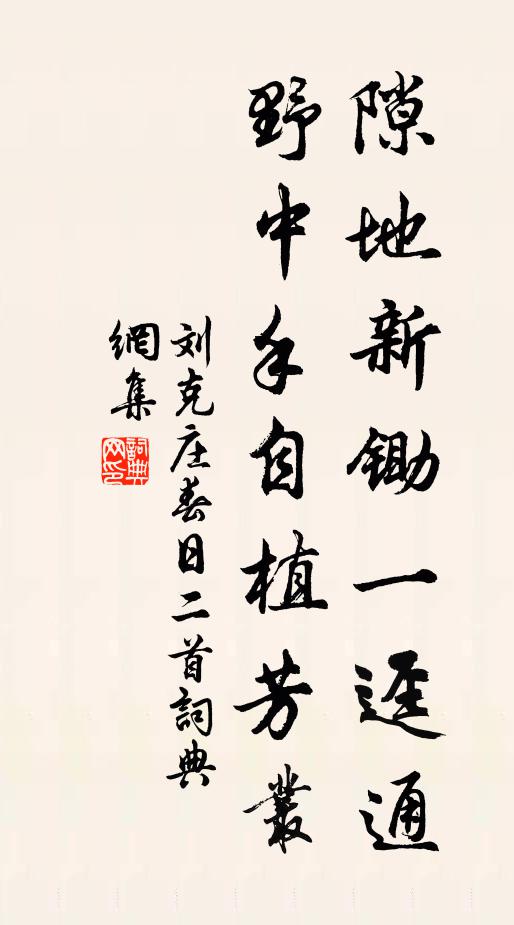 隙地新锄一逕通
野中手自植芳叢
刘克庄春日二首詞典
網集
詞典
网印